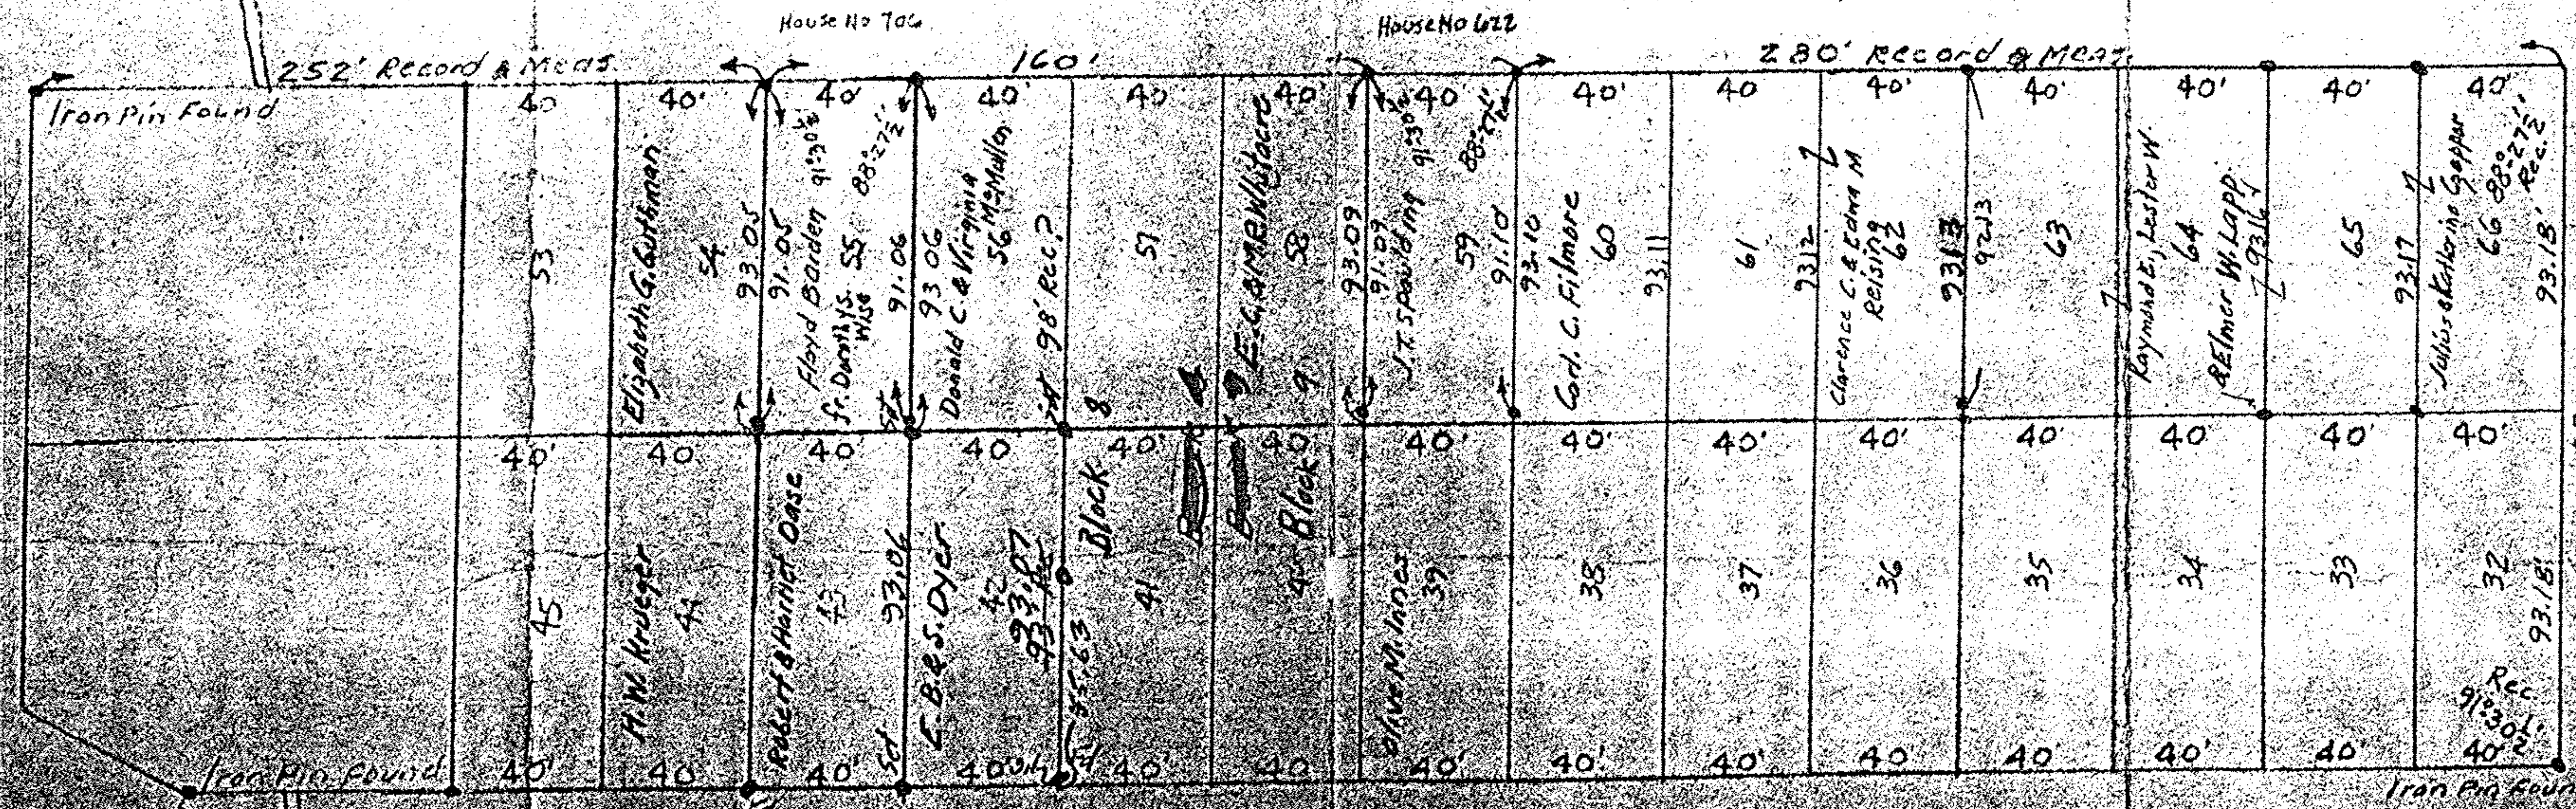 House No 706
House No 622
252' Record & Meas.
160'
280' Record & Meas.
Iron Pin Found
40
40'
40'
40'
40
40'
40
40'
40
40'
40'
40'
40'
40'
53
Elizabeth G. Guthman
54
93.05
91.05
Floyd Barden
fr. Dorothy S. Wise
55
91°-30½'
88°-27½'
91.06
93.06
Sd
Donald C. & Virginia
56 McMullen
98' Rec?
57
8
E.C. & M.E. Whitacre
58
9
93.09
91.09
J.T. Spaulding
91°-30½'
88°-27½'
59
91.10
93.10
Carl. C. Filmore
60
93.11
61
93.12
Clarence C. & Edna M
Reising
62
93.13
92.13
63
Raymond E., Lester W
64
& Elmer W. Lapp
93.16
65
93.17
Julius & Katherine
66
88°-27½'
Rec.
93.18'
40'
40
40'
40
40'
40'
40'
40'
40'
40'
40'
40'
40'
40'
45
H.W. Krueger
44
Robert & Harriet Dase
43
93.06
Sd
E.B. & S. Dyer
42
93.07
93 Rec
55.63
Block
41
Block
Olive M. Innes
39
38
37
36
35
34
33
32
93.18'
Rec.
91°30½'
Iron Pin Found
40'
40
40'
40
40'
40
40'
40'
40'
40'
40'
40'
40'
40'
Iron Pin Foun